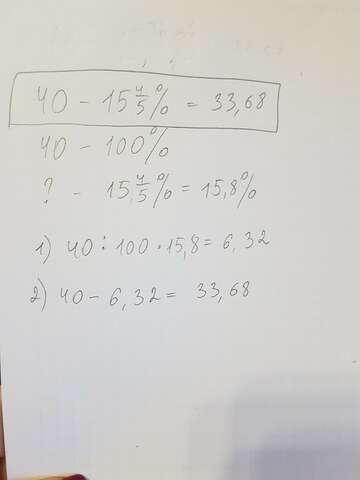 40 - 15 4/5 % = 33,68
40 - 100%
? - 15 4/5 % = 15,8%
1) 40 : 100 · 15,8 = 6,32
2) 40 - 6,32 = 33,68